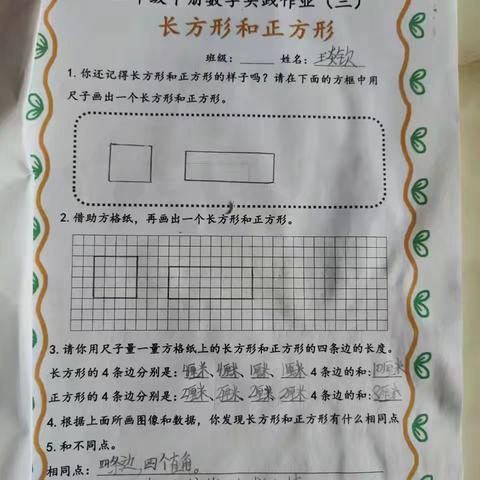 下册数学实践作业（三）
长方形和正方形
班级：______ 姓名：
1. 你还记得长方形和正方形的样子吗？请在下面的方框中用
尺子画出一个长方形和正方形。
2. 借助方格纸，再画出一个长方形和正方形。
3. 请你用尺子量一量方格纸上的长方形和正方形的四条边的长度。
长方形的 4 条边分别是：4厘米、4厘米、1厘米、1厘米 4 条边的和：10厘米
正方形的 4 条边分别是：2厘米、2厘米、2厘米、2厘米 4 条边的和：8厘米
4. 根据上面所画图像和数据，你发现长方形和正方形有什么相同点
5. 和不同点。
相同点：四条边，四个直角。